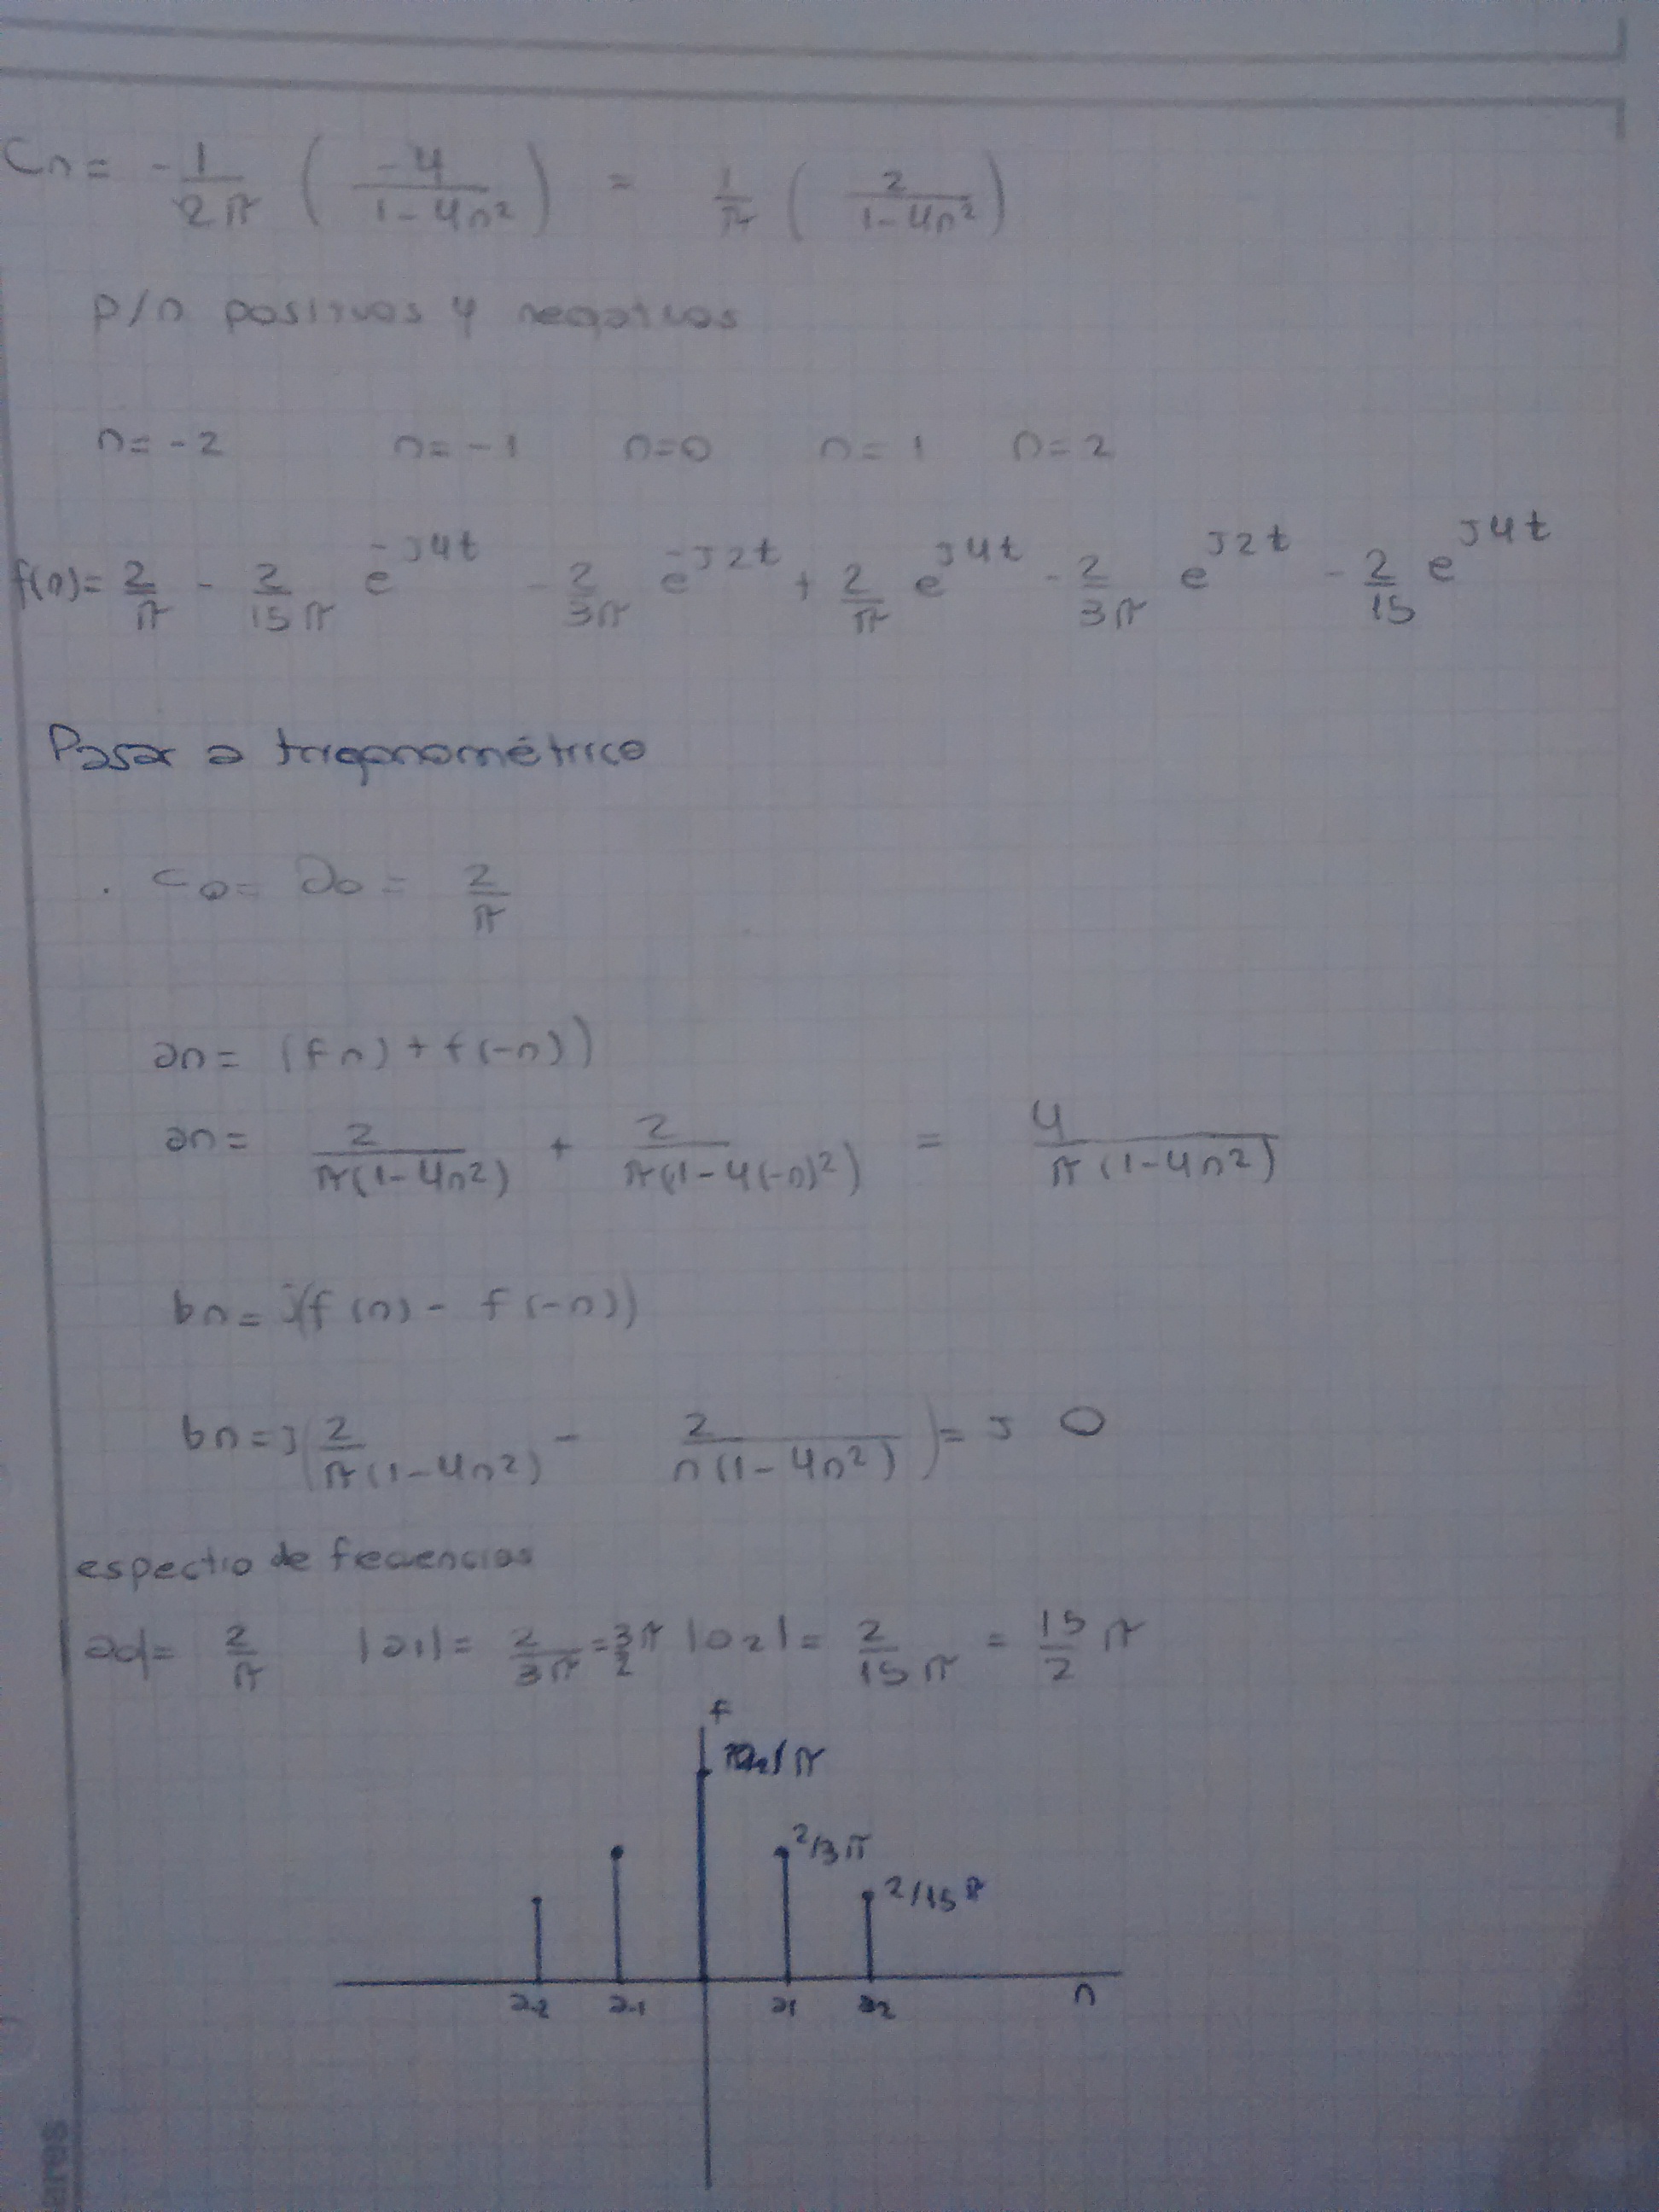 Cn = -1/2π ( -4/1-4n² ) = 1/π ( 2/1-4n² )
P/n positivos y negativos
n=-2 n=-1 n=0 n=1 n=2
f(n)= 2/π - 2/15π e^-j4t - 2/3π e^-j2t + 2/π e^j4t - 2/3π e^j2t - 2/15 e^j4t
Pasar a trigonométrico
. c0= a0 = 2/π
an= (fn) + f(-n))
an= 2/π(1-4n²) + 2/π(1-4(-n)²) = 4/π(1-4n²)
bn= j(f(n) - f(-n))
bn=j(2/π(1-4n²) - 2/n(1-4n²))= j 0
espectro de frecuencias
|a0|= 2/π |a1|= 2/3π =3/2π |a2|= 2/15π = 15/2 π
f
/π
2/3π
2/15π
a-2 a-1 a1 a2 n
ares